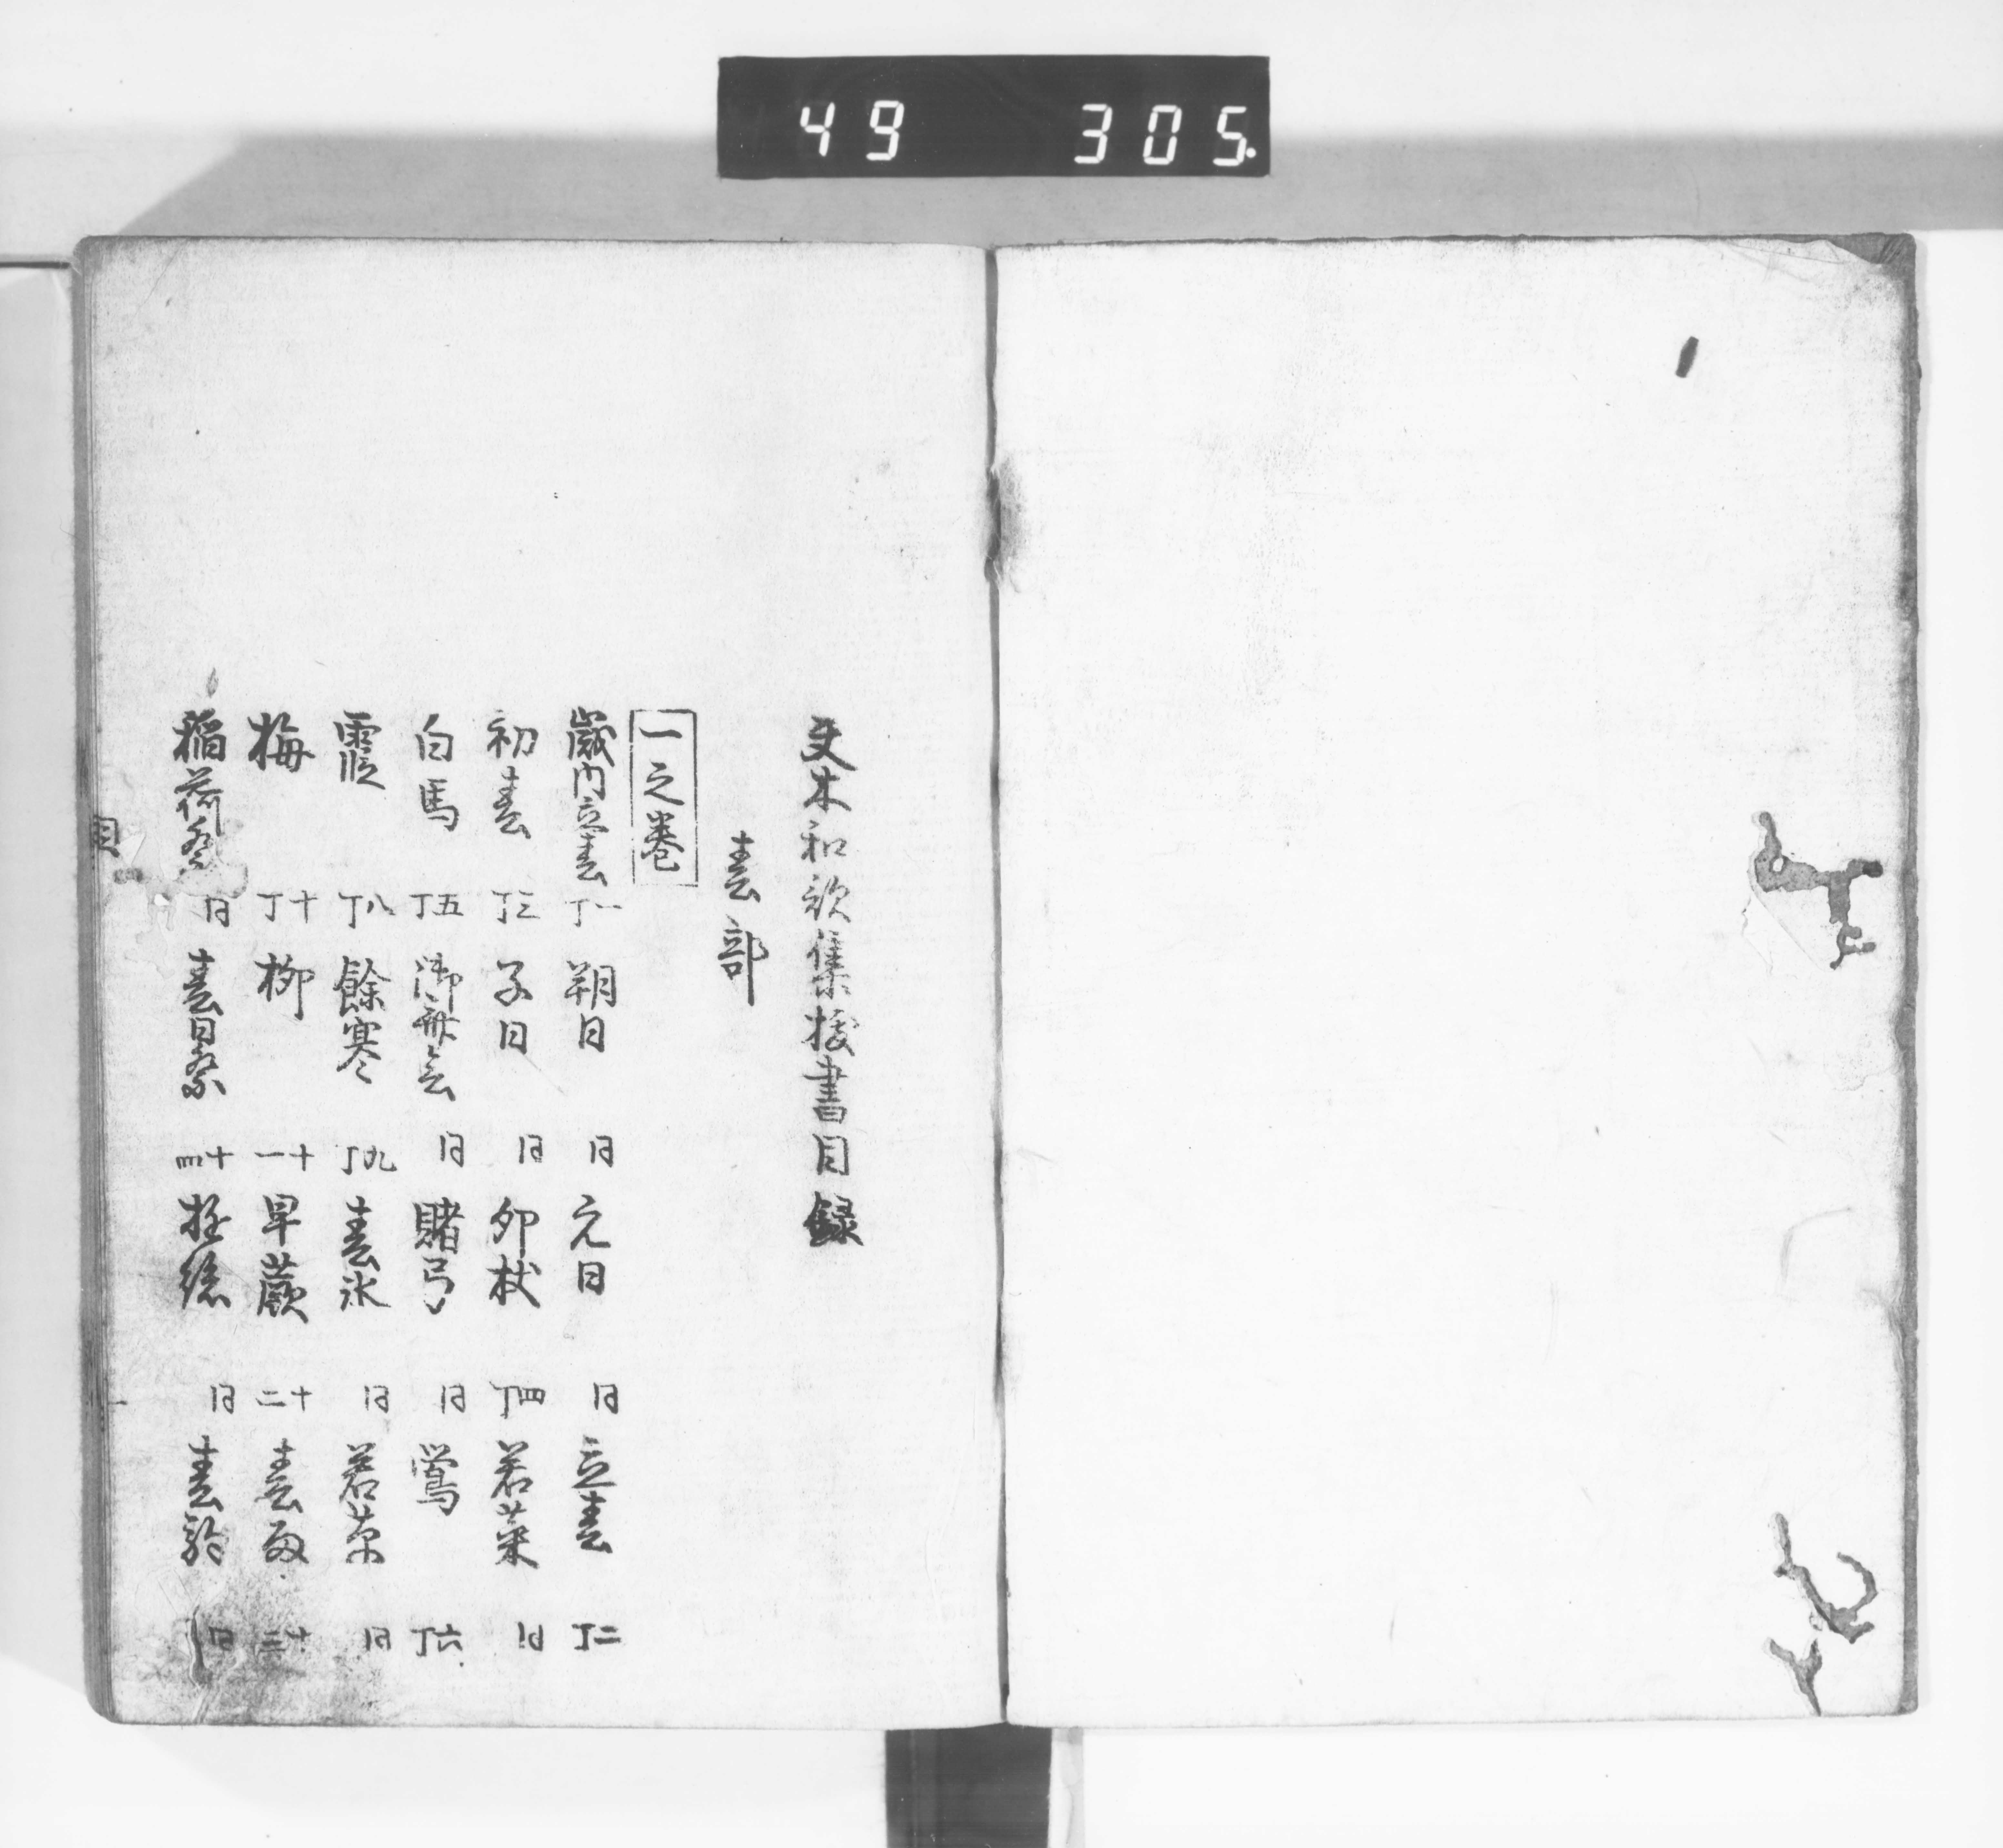 49 305.
夫木和歌集抜書目録
春部
一之巻
歳内立春 一丁 朔日 同 元日 同 立春 二丁
初春 三丁 子日 同 卯杖 四丁 若菜 同
白馬 五丁 御斎会 同 賭弓 同 鶯 六丁
霞 八丁 餘寒 九丁 春氷 同 若草 同
梅 十丁 柳 十一 早蕨 十二 春雨 十三
稲荷祭 同 春日祭 十四 遊絲 同 春駒 同
目
一